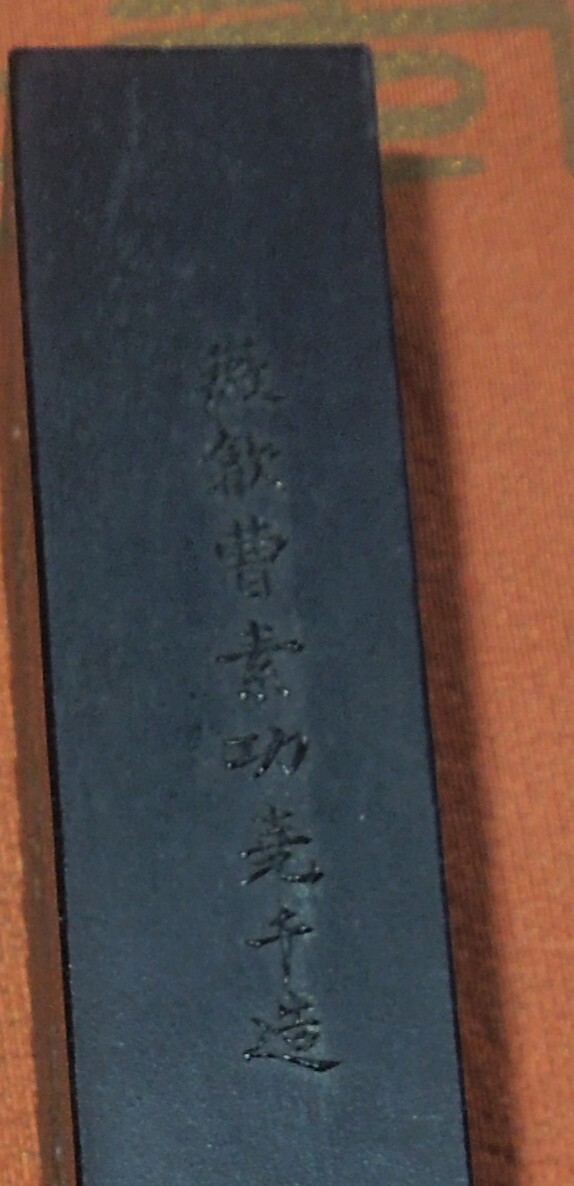 徽歙曹素功堯千造